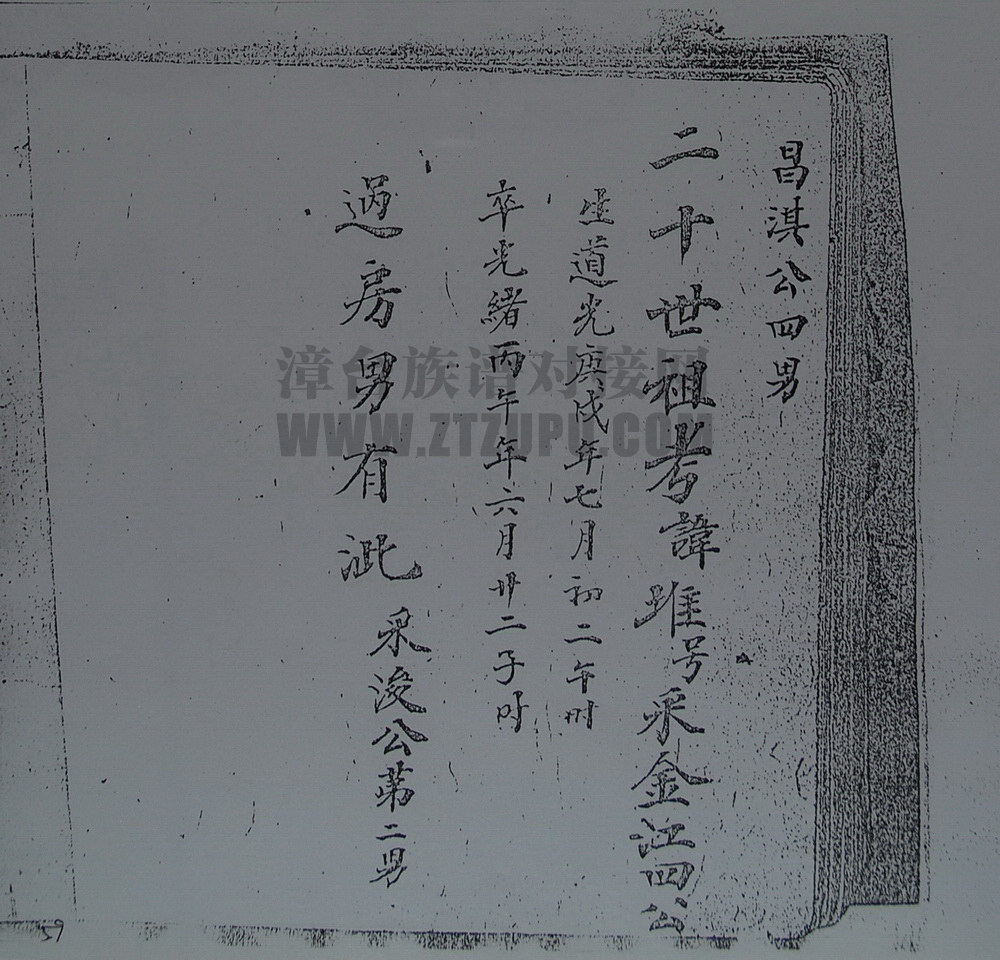 昌淇公四男
二十世祖考諱堆号采金江四公
生道光庚戌年七月初二午时
卒光緒丙午年六月廿二子时
過房男有泚
采浚公第二男
漳台族谱对接网
WWW.ZTZUPU.COM
59